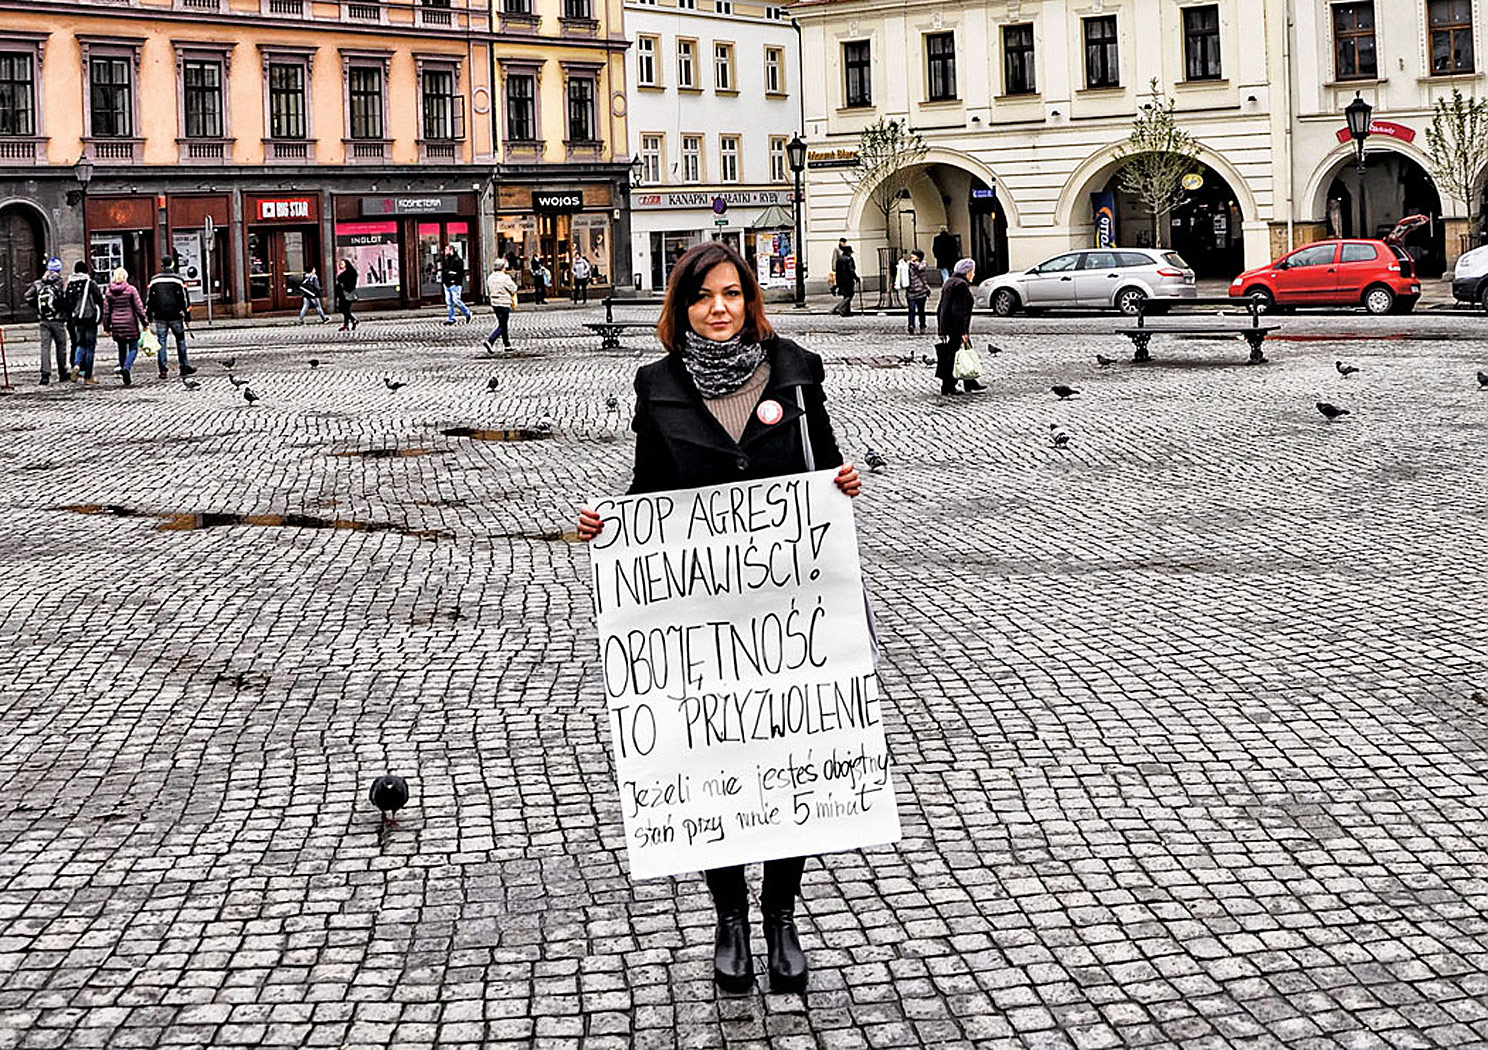 BIG STAR
KOSMETERIA
INGLOT
wojas
KANAPKI SAŁATKI RYBY
STOP AGRESJI
I NIENAWIŚCI!
OBOJĘTNOŚĆ
TO PRZYZWOLENIE
Jeżeli nie jesteś obojętny
stań przy mnie 5 minut